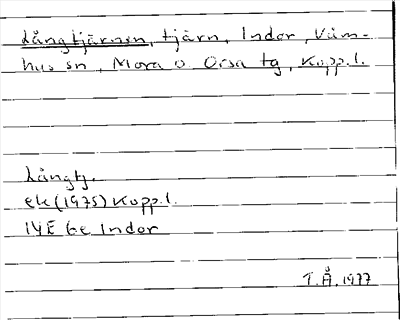 Långtjärnen, tjärn, Indor, Våm-
hus sn, Mora o Orsa tg, Kopp.l.
Långtj.
ek (1975) Kopp.l.
14E 6e Indor
T.Å. 1977